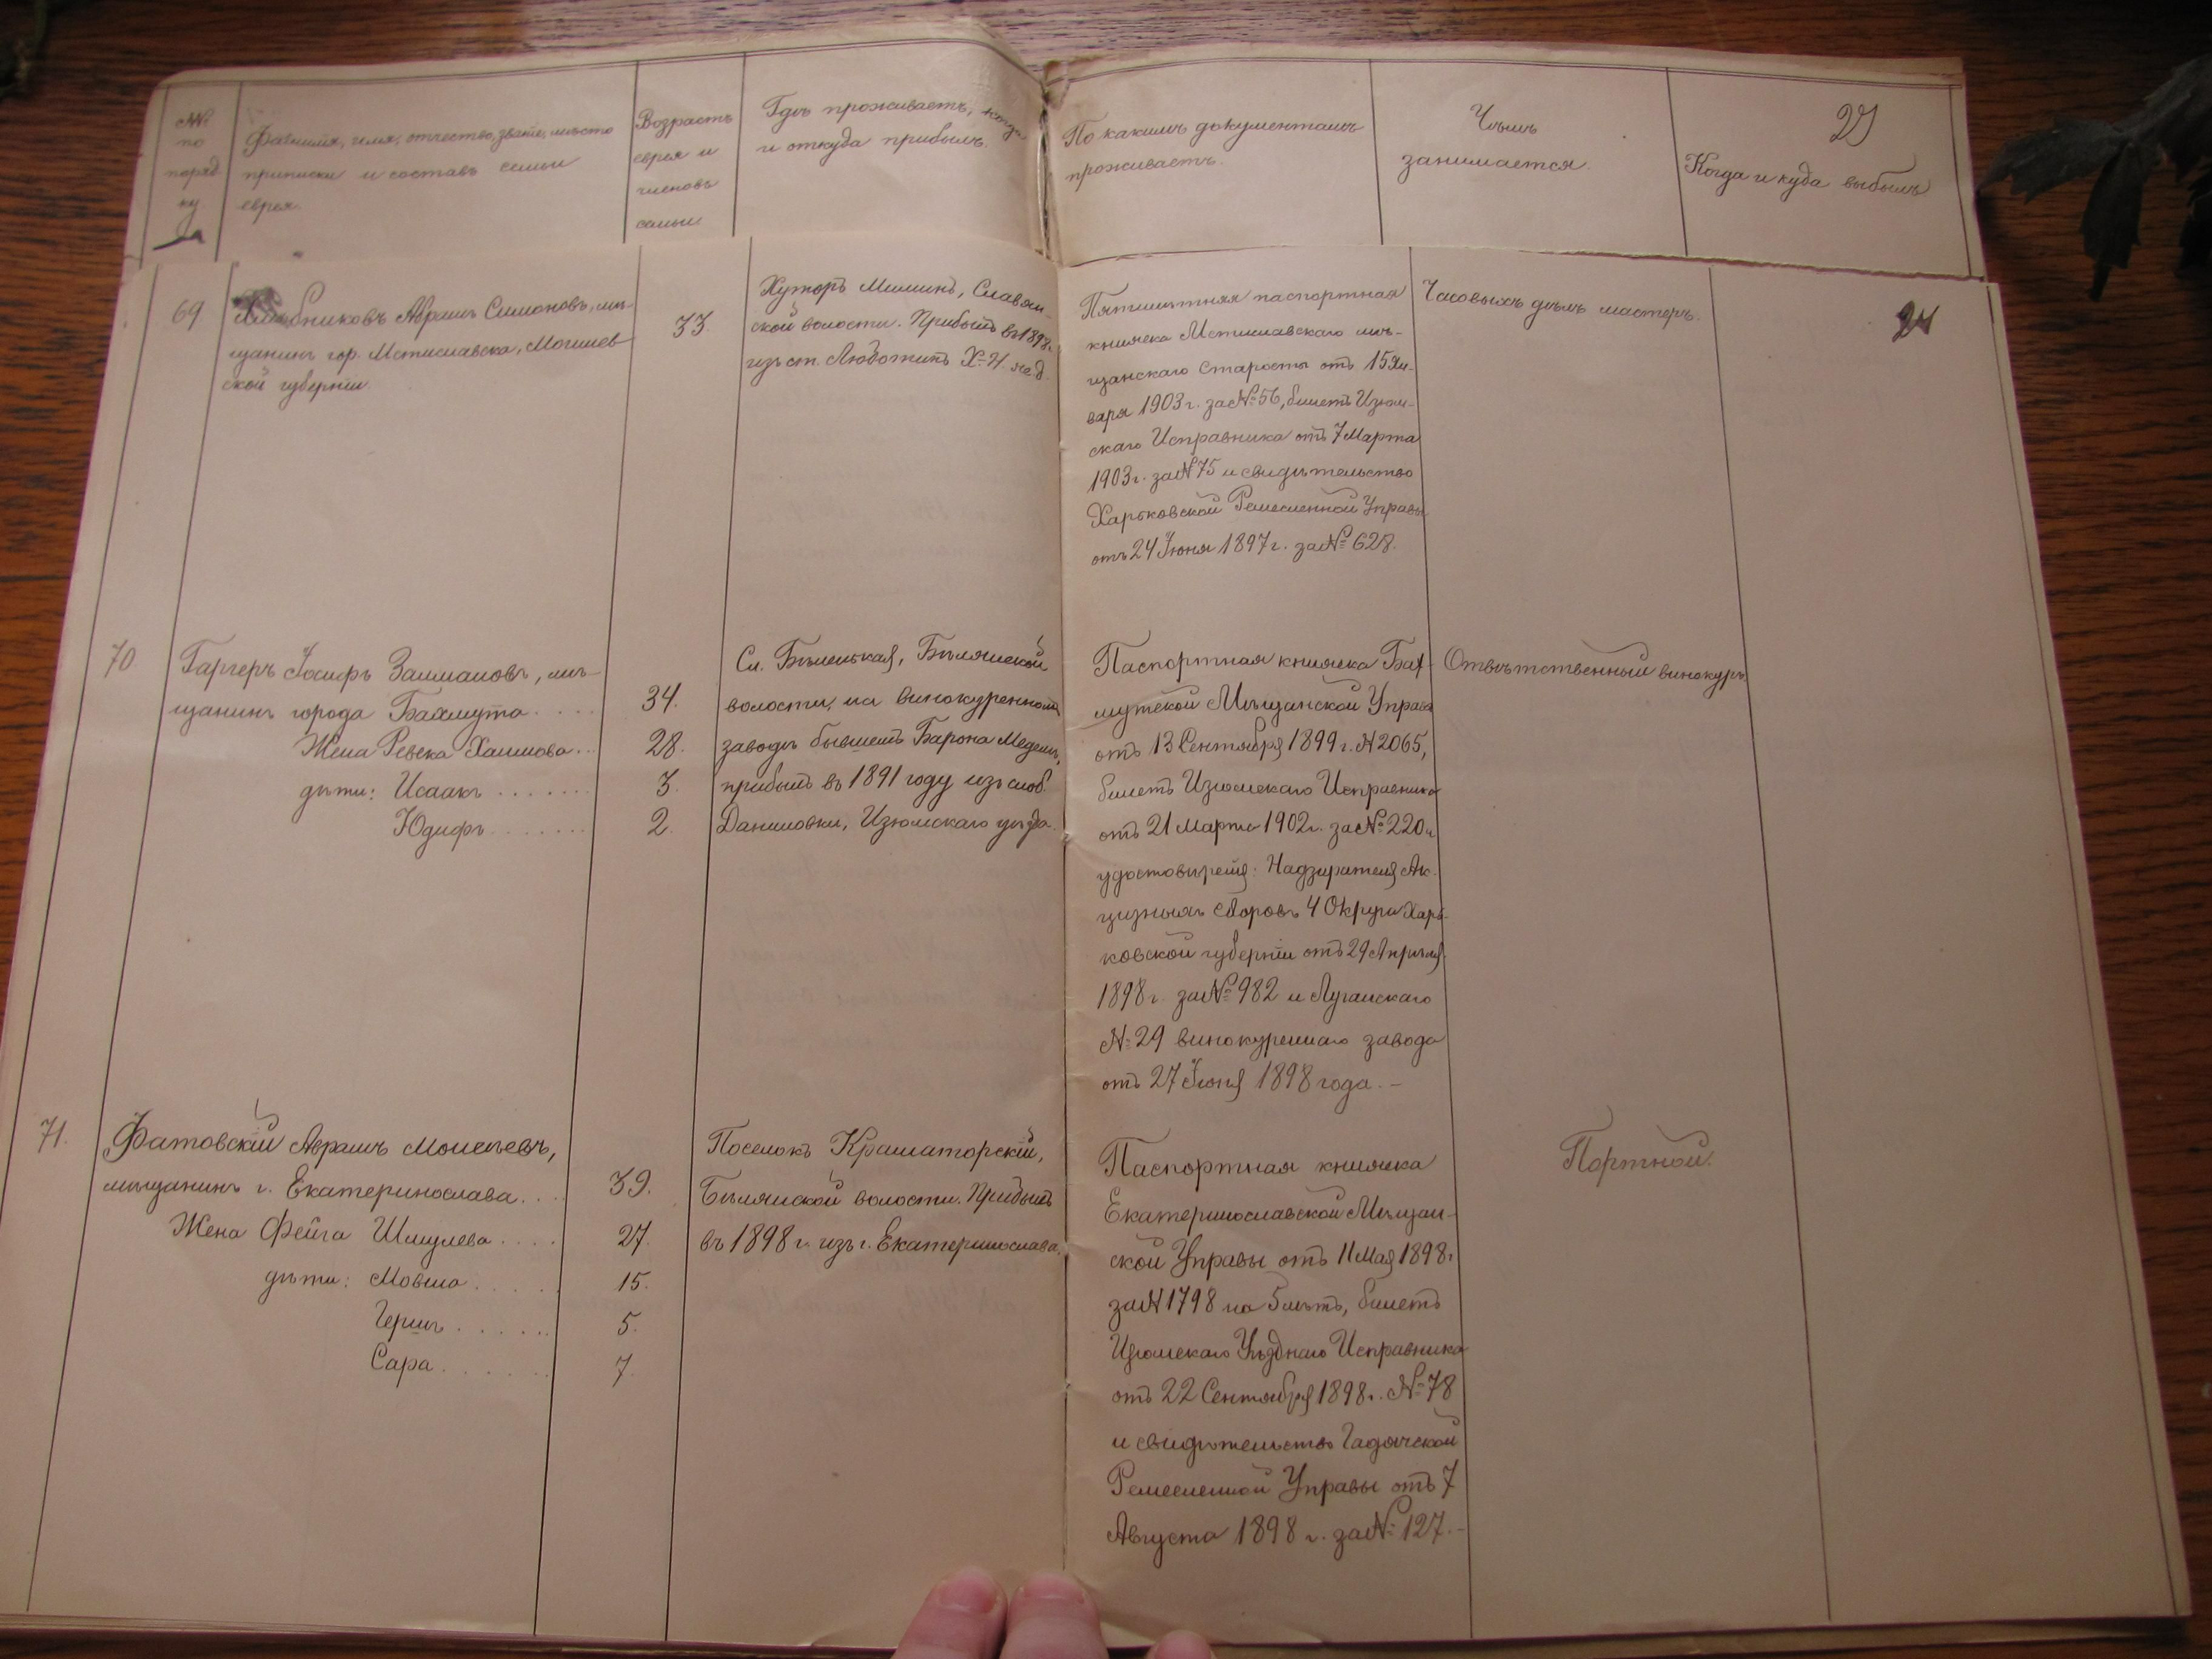 №№
по
поряд
ку
Фамилія, имя, отчество, званіе, мѣсто
приписки и составъ семьи
еврея.
Возрастъ
еврея и
членовъ
семьи
Гдѣ проживаетъ, когда
и откуда прибылъ.
По какимъ документамъ
проживаетъ.
Чѣмъ
занимается.
27
Когда и куда выбылъ
69
Абрамъ Симоновъ, мѣ-
щанинъ гор. Мстиславска, Могилев-
ской губерніи.
33.
Хуторъ Славян-
ской волости. Прибылъ въ 1898 г.
изъ ст. Люботинъ Х.-Н. ж.д.
Пятилѣтняя паспортная
книжка Мстиславскаго мѣ-
щанскаго Старосты отъ 15 Ян-
варя 1903 г. за № 56, билетъ Изюм-
скаго Исправника отъ 7 Марта
1903 г. за № 75 и свидѣтельство
Харьковской Ремесленной Управы
отъ 24 Іюня 1897 г. за № 628.
Часовыхъ дѣлъ мастеръ.
24
70
Гаргеръ Іосифъ Залмановъ, мѣ-
щанинъ города Бахмута . . . .
Жена Ревека Хаимова . . .
дѣти: Исаакъ . . . . . . .
Юдифъ . . . . . . .
34.
28.
3.
2.
Сл. Бѣленькая, Бѣлянской
волости, на винокуренномъ
заводѣ бывшемъ Барона Медемъ,
прибылъ въ 1891 году изъ слоб.
Даниловки, Изюмскаго уѣзда.
Паспортная книжка Бах-
мутской Мѣщанской Управы
отъ 13 Сентября 1899 г. № 2065,
билетъ Изюмскаго Исправника
отъ 21 Марта 1902 г. за № 220 и
удостовѣренія: Надзирателя Ак-
цизныхъ сборовъ 4 Округа Харь-
ковской губерніи отъ 29 Апрѣля
1898 г. за № 982 и Луганскаго
№ 29 винокуреннаго завода
отъ 27 Іюня 1898 года. –
Отвѣтственный винокуръ.
71.
Фатовскій Абрамъ Моисеевъ,
мѣщанинъ г. Екатеринослава . . . .
Жена Фейга Шмулева . . . .
дѣти: Мовша . . . . .
Гершъ . . . . . .
Сара . . . . . .
39.
27.
15.
5.
7.
Поселокъ Краматорскій,
Бѣлянской волости. Прибылъ
въ 1898 г. изъ г. Екатеринослава.
Паспортная книжка
Екатеринославской Мѣщан-
ской Управы отъ 11 Мая 1898 г.
за № 1798 на 5 лѣтъ, билетъ
Изюмскаго Уѣзднаго Исправника
отъ 22 Сентября 1898 г. № 78
и свидѣтельство Гадячской
Ремесленной Управы отъ 7
Августа 1898 г. за № 127. –
Портной.